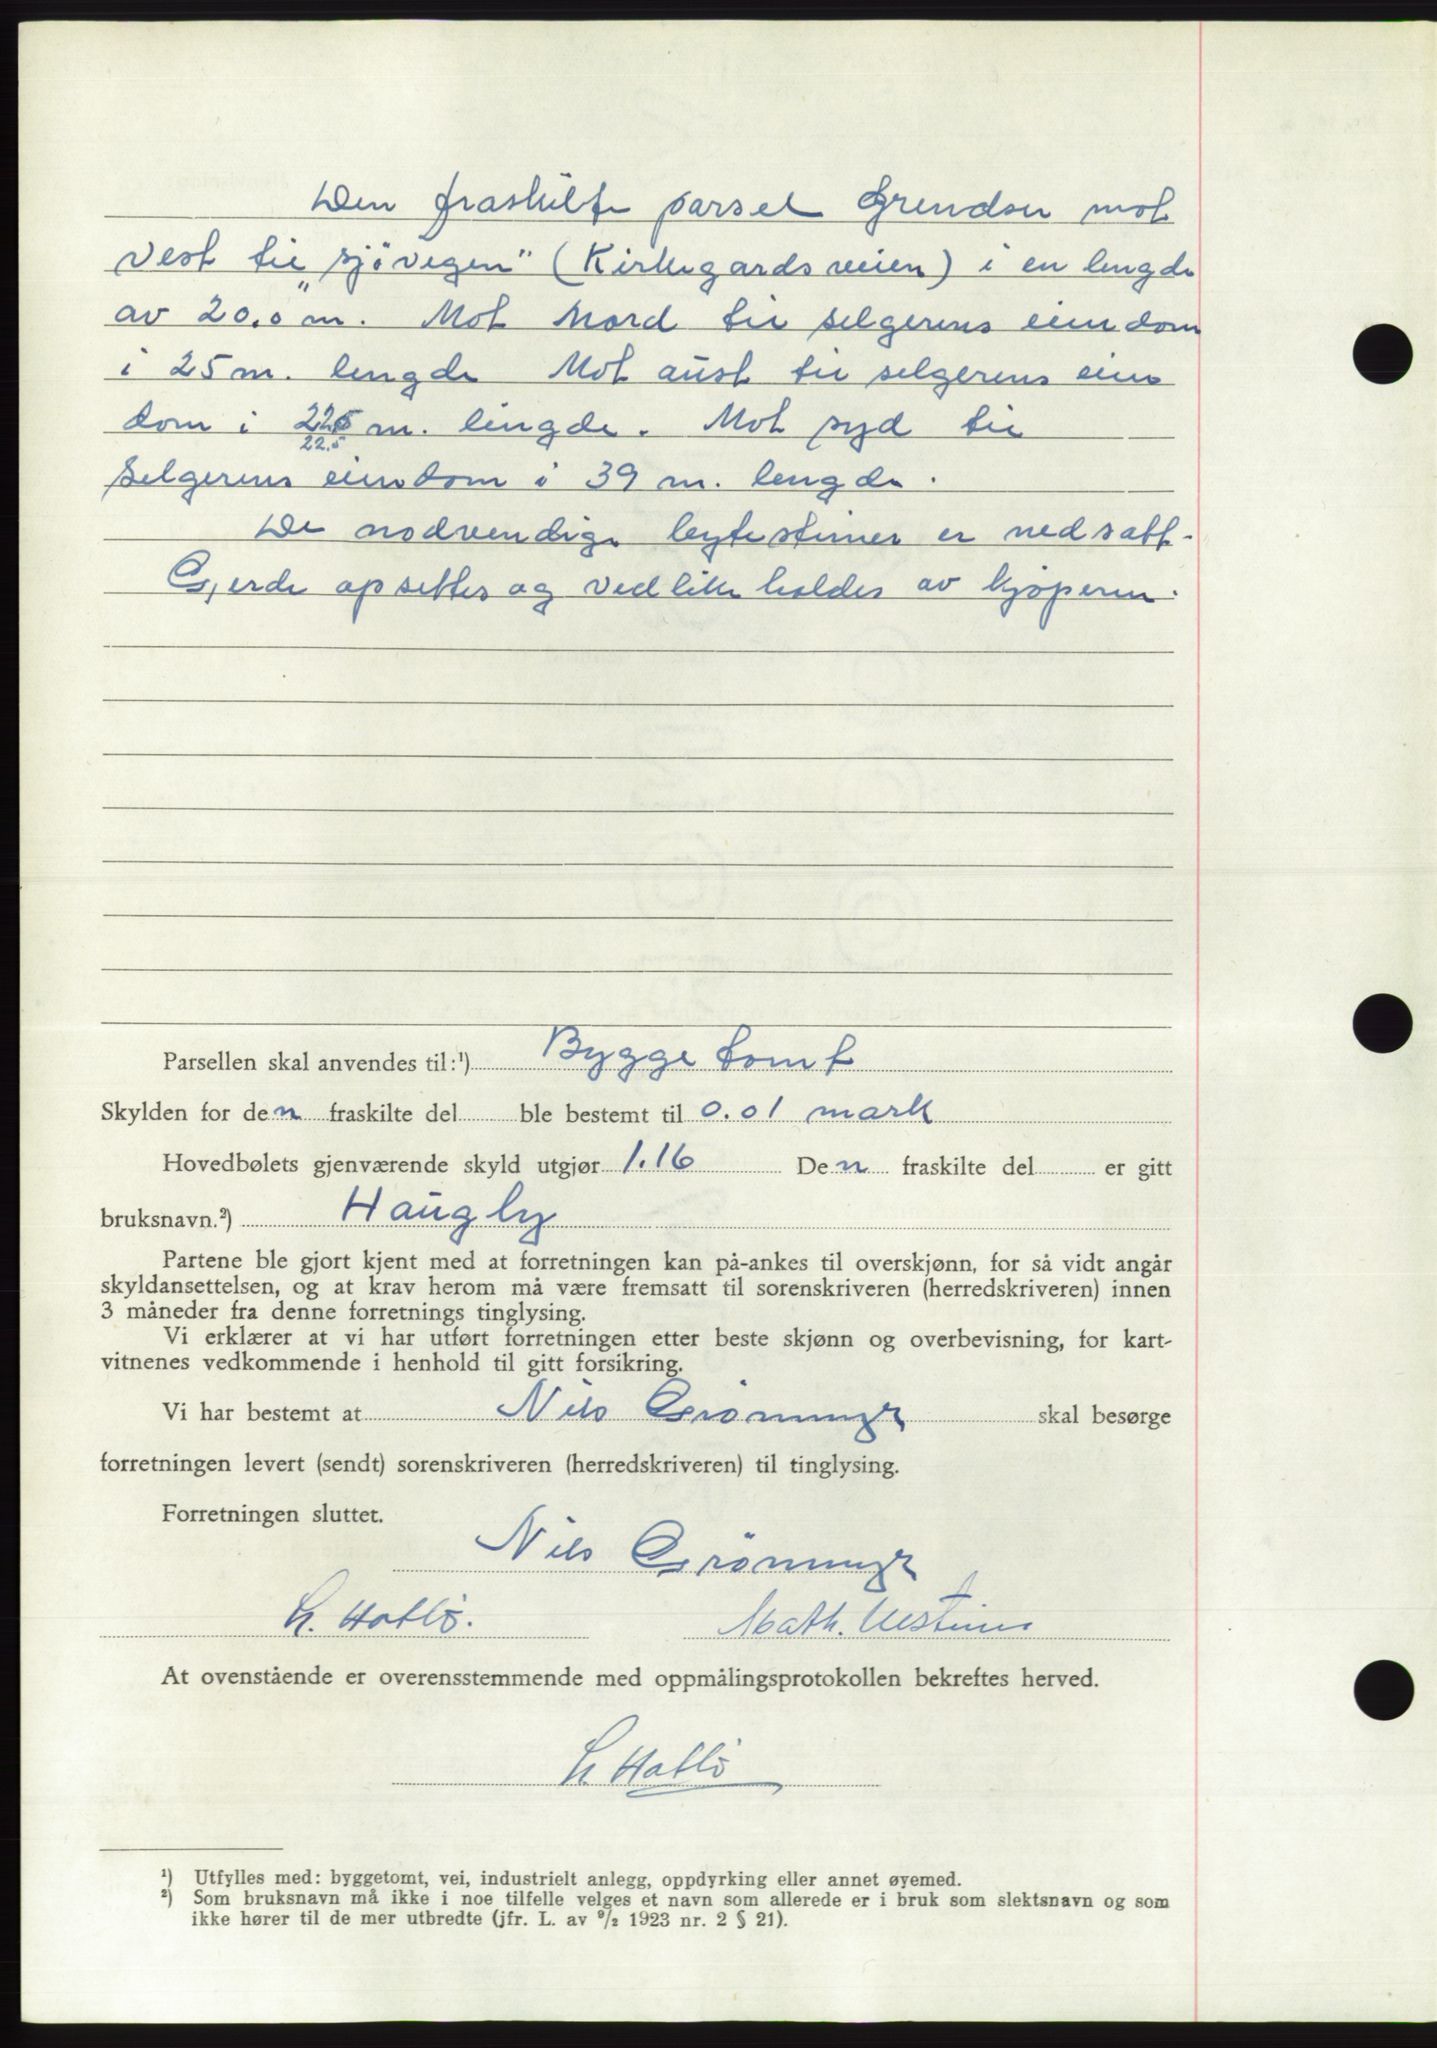 Den fraskilte parsel Grendser mot
vest til „sjövegen" (Kirkegardsveien) i en lengde
av 20.0 m. Mot Nord til selgerens eien dom
i 25 m. lengde Mot aust til selgerens eien
dom i 22,5 m. lengde. Mot syd til
22.5
selgerens eiendom i 39 m. lengde.
De nodvendige bytesteiner er nedsatt.
Gjerde opsettes og vedlike holdes av kjöperen.
Parsellen skal anvendes til:¹) Bygge tomt
Skylden for den fraskilte del ble bestemt til 0.01 mark
Hovedbølets gjenværende skyld utgjør 1.16 Den fraskilte del er gitt
bruksnavn.²) Haugby
Partene ble gjort kjent med at forretningen kan på-ankes til overskjønn, for så vidt angår
skyldansettelsen, og at krav herom må være fremsatt til sorenskriveren (herredskriveren) innen
3 måneder fra denne forretnings tinglysing.
Vi erklærer at vi har utført forretningen etter beste skjønn og overbevisning, for kart-
vitnenes vedkommende i henhold til gitt forsikring.
Vi har bestemt at Nils Gröningen skal besørge
forretningen levert (sendt) sorenskriveren (herredskriveren) til tinglysing.
Forretningen sluttet.
Nils Gröningen
Hatlö. Math.
At ovenstående er overensstemmende med oppmålingsprotokollen bekreftes herved.
Hatlö
¹) Utfylles med: byggetomt, vei, industrielt anlegg, oppdyrking eller annet øyemed.
²) Som bruksnavn må ikke i noe tilfelle velges et navn som allerede er i bruk som slektsnavn og som
ikke hører til de mer utbredte (jfr. L. av ⁹/₂ 1923 nr. 2 § 21).